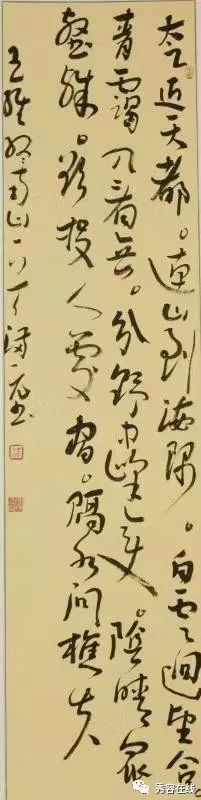 太乙近天都。連山到海隅。白雲迴望合。
青靄入看無。分野中峰變。陰晴眾
壑殊。欲投人處宿。隔水問樵夫
王維終南山
秀容在线